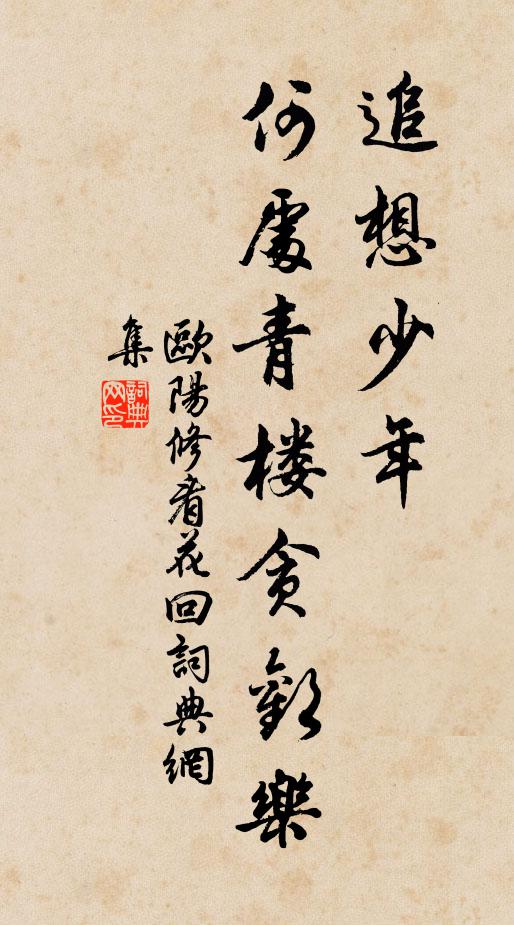 追想少年
何處青楼贪歡樂
歐陽修看花回詞典網
集
詞典网印